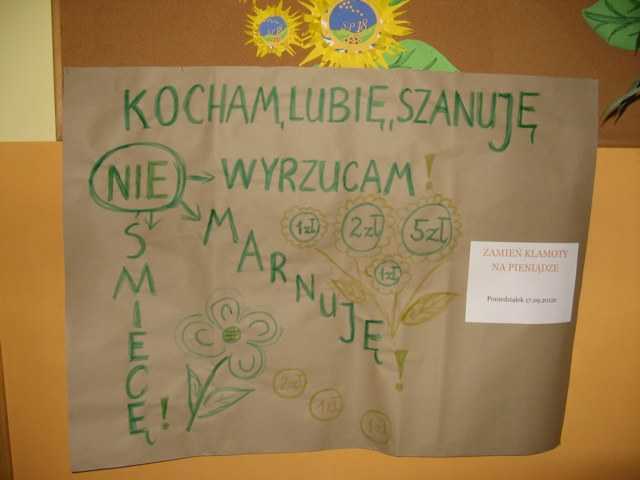 SP 18
SP 18
KOCHAM, LUBIĘ, SZANUJĘ
NIE → WYRZUCAM!
MARNUJĘ!
ŚMIECĘ!
1zł 2zł 5zł
1zł
2zł
1zł
1zł
ZAMIEŃ KLAMOTY
NA PIENIĄDZE
Poniedziałek 17.09.2012r